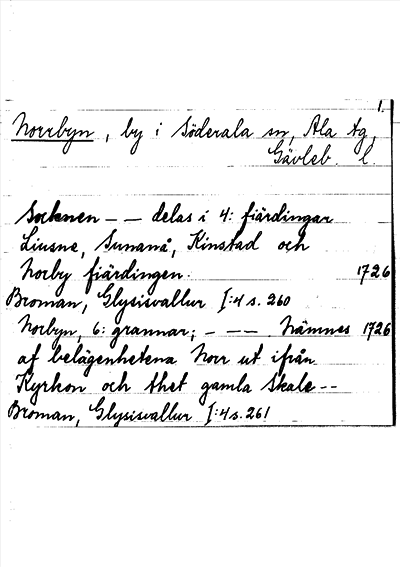 1.
Norrbyn, by i Söderala sn, Ala tg,
Gävleb. l.
Socknen – – delas i 4: fiärdingar
Liusne, Sunanå, Kinstad och
Norby fiärdingen. 1726
Broman, Glysisvallur I:4 s. 260
Norbyn, 6: grannar; – – – Nämnes 1726
af belägenhetena Norr ut ifrån
Kyrkon och thet gamla Skale – –
Broman, Glysisvallur I:4 s. 261